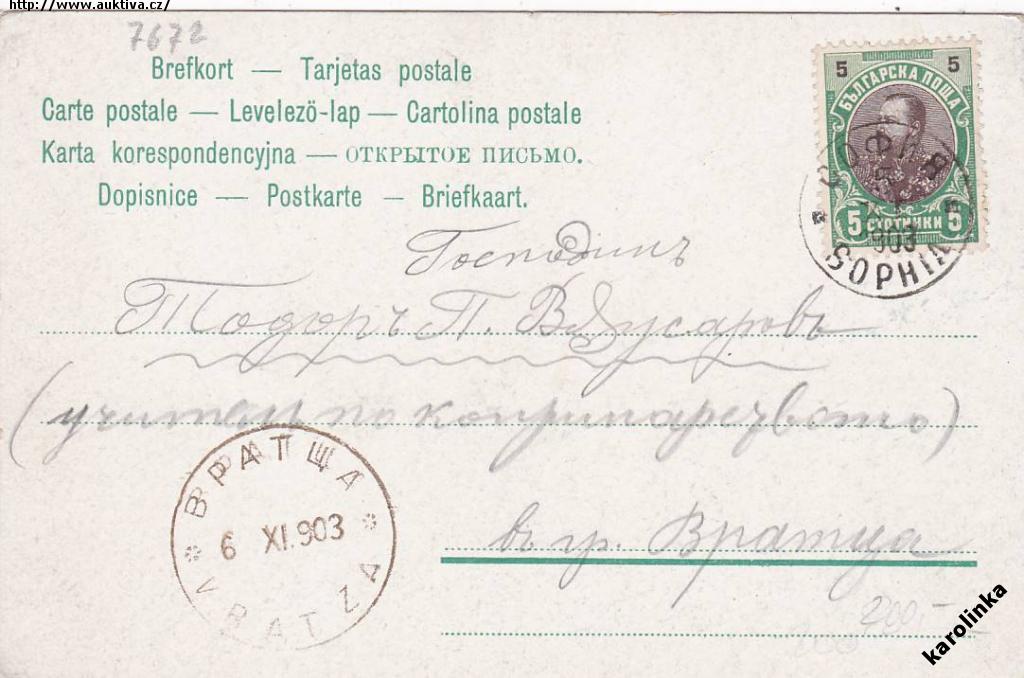 http://www.auktiva.cz/
7672
Brefkort — Tarjetas postale
Carte postale — Levelezö-lap — Cartolina postale
Karta korespondencyjna — ОТКРЫТОЕ ПИСЬМО.
Dopisnice — Postkarte — Briefkaart.
5 5
БЪЛГАРСКА ПОЩА
5 СТОТИНКИ 5
СОФИЯ
903
SOPHIA
Господинъ
Тодоръ П.
(учител по копринарезвото)
ВРАТЦА
6 XI.903
VRATZA
въ гр. Вратца
200.—
karolinka